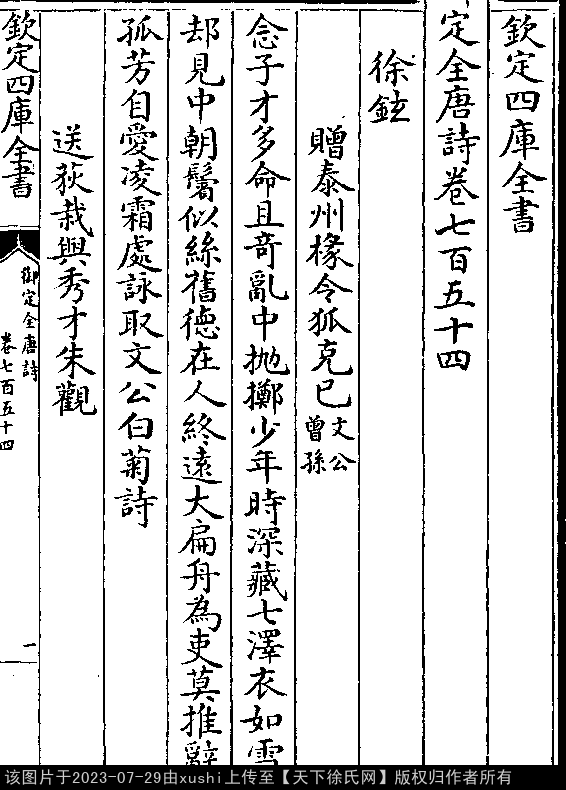 欽定四庫全書
定全唐詩卷七百五十四
徐鉉
贈泰州掾令狐克已文公曾孫
念子才多命且竒亂中抛擲少年時深藏七澤衣如雪
却見中朝鬢似絲舊徳在人終遠大扁舟為吏莫推辭
孤芳自愛凌霜處詠取文公白菊詩
送荻栽與秀才朱觀
欽定四庫全書
御定全唐詩
卷七百五十四
一
该图片于2023-07-29由xushi上传至【天下徐氏网】版权归作者所有